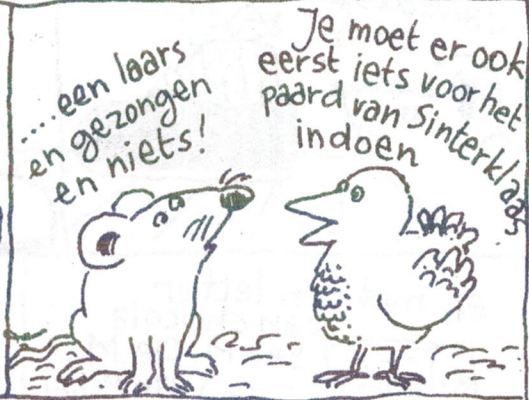 ....een laars
en gezongen
en niets!
Je moet er ook
eerst iets voor het
paard van Sinterklaas
indoen